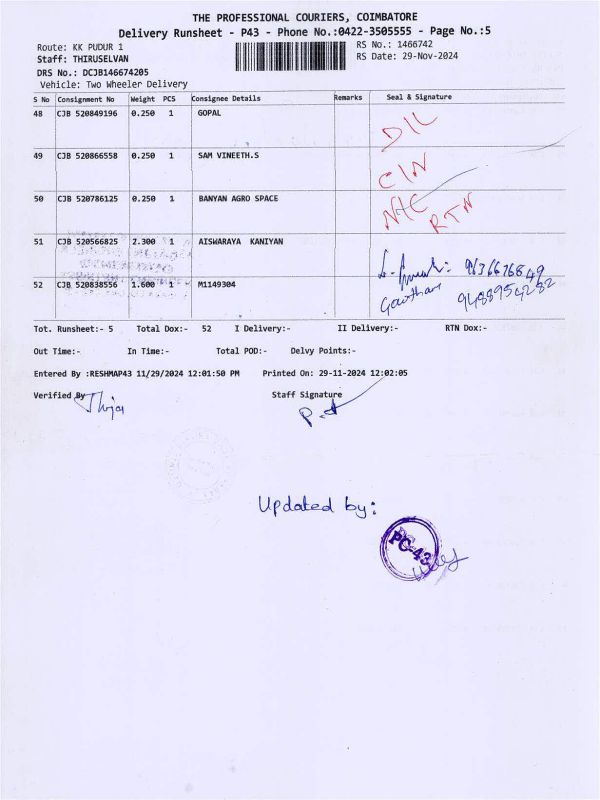 THE PROFESSIONAL COURIERS, COIMBATORE
Delivery Runsheet - P43 - Phone No.:0422-3505555 - Page No.:5
Route: KK PUDUR 1 RS No.: 1466742
Staff: THIRUSELVAN RS Date: 29-Nov-2024
DRS No.: DCJB146674205
Vehicle: Two Wheeler Delivery
S No Consignment No Weight PCS Consignee Details Remarks Seal & Signature
48 CJB 520849196 0.250 1 GOPAL D/L
49 CJB 520866558 0.250 1 SAM VINEETH.S C/N
50 CJB 520786125 0.250 1 BANYAN AGRO SPACE N/C RTN
51 CJB 520566825 2.300 1 AISWARAYA KANIYAN
52 CJB 520838556 1.600 1 M1149304 Gowtham
Tot. Runsheet:- 5 Total Dox:- 52 I Delivery:- II Delivery:- RTN Dox:-
Out Time:- In Time:- Total POD:- Delvy Points:-
Entered By :RESHMAP43 11/29/2024 12:01:50 PM Printed On: 29-11-2024 12:02:05
Verified By Staff Signature
Updated by:
PC-43